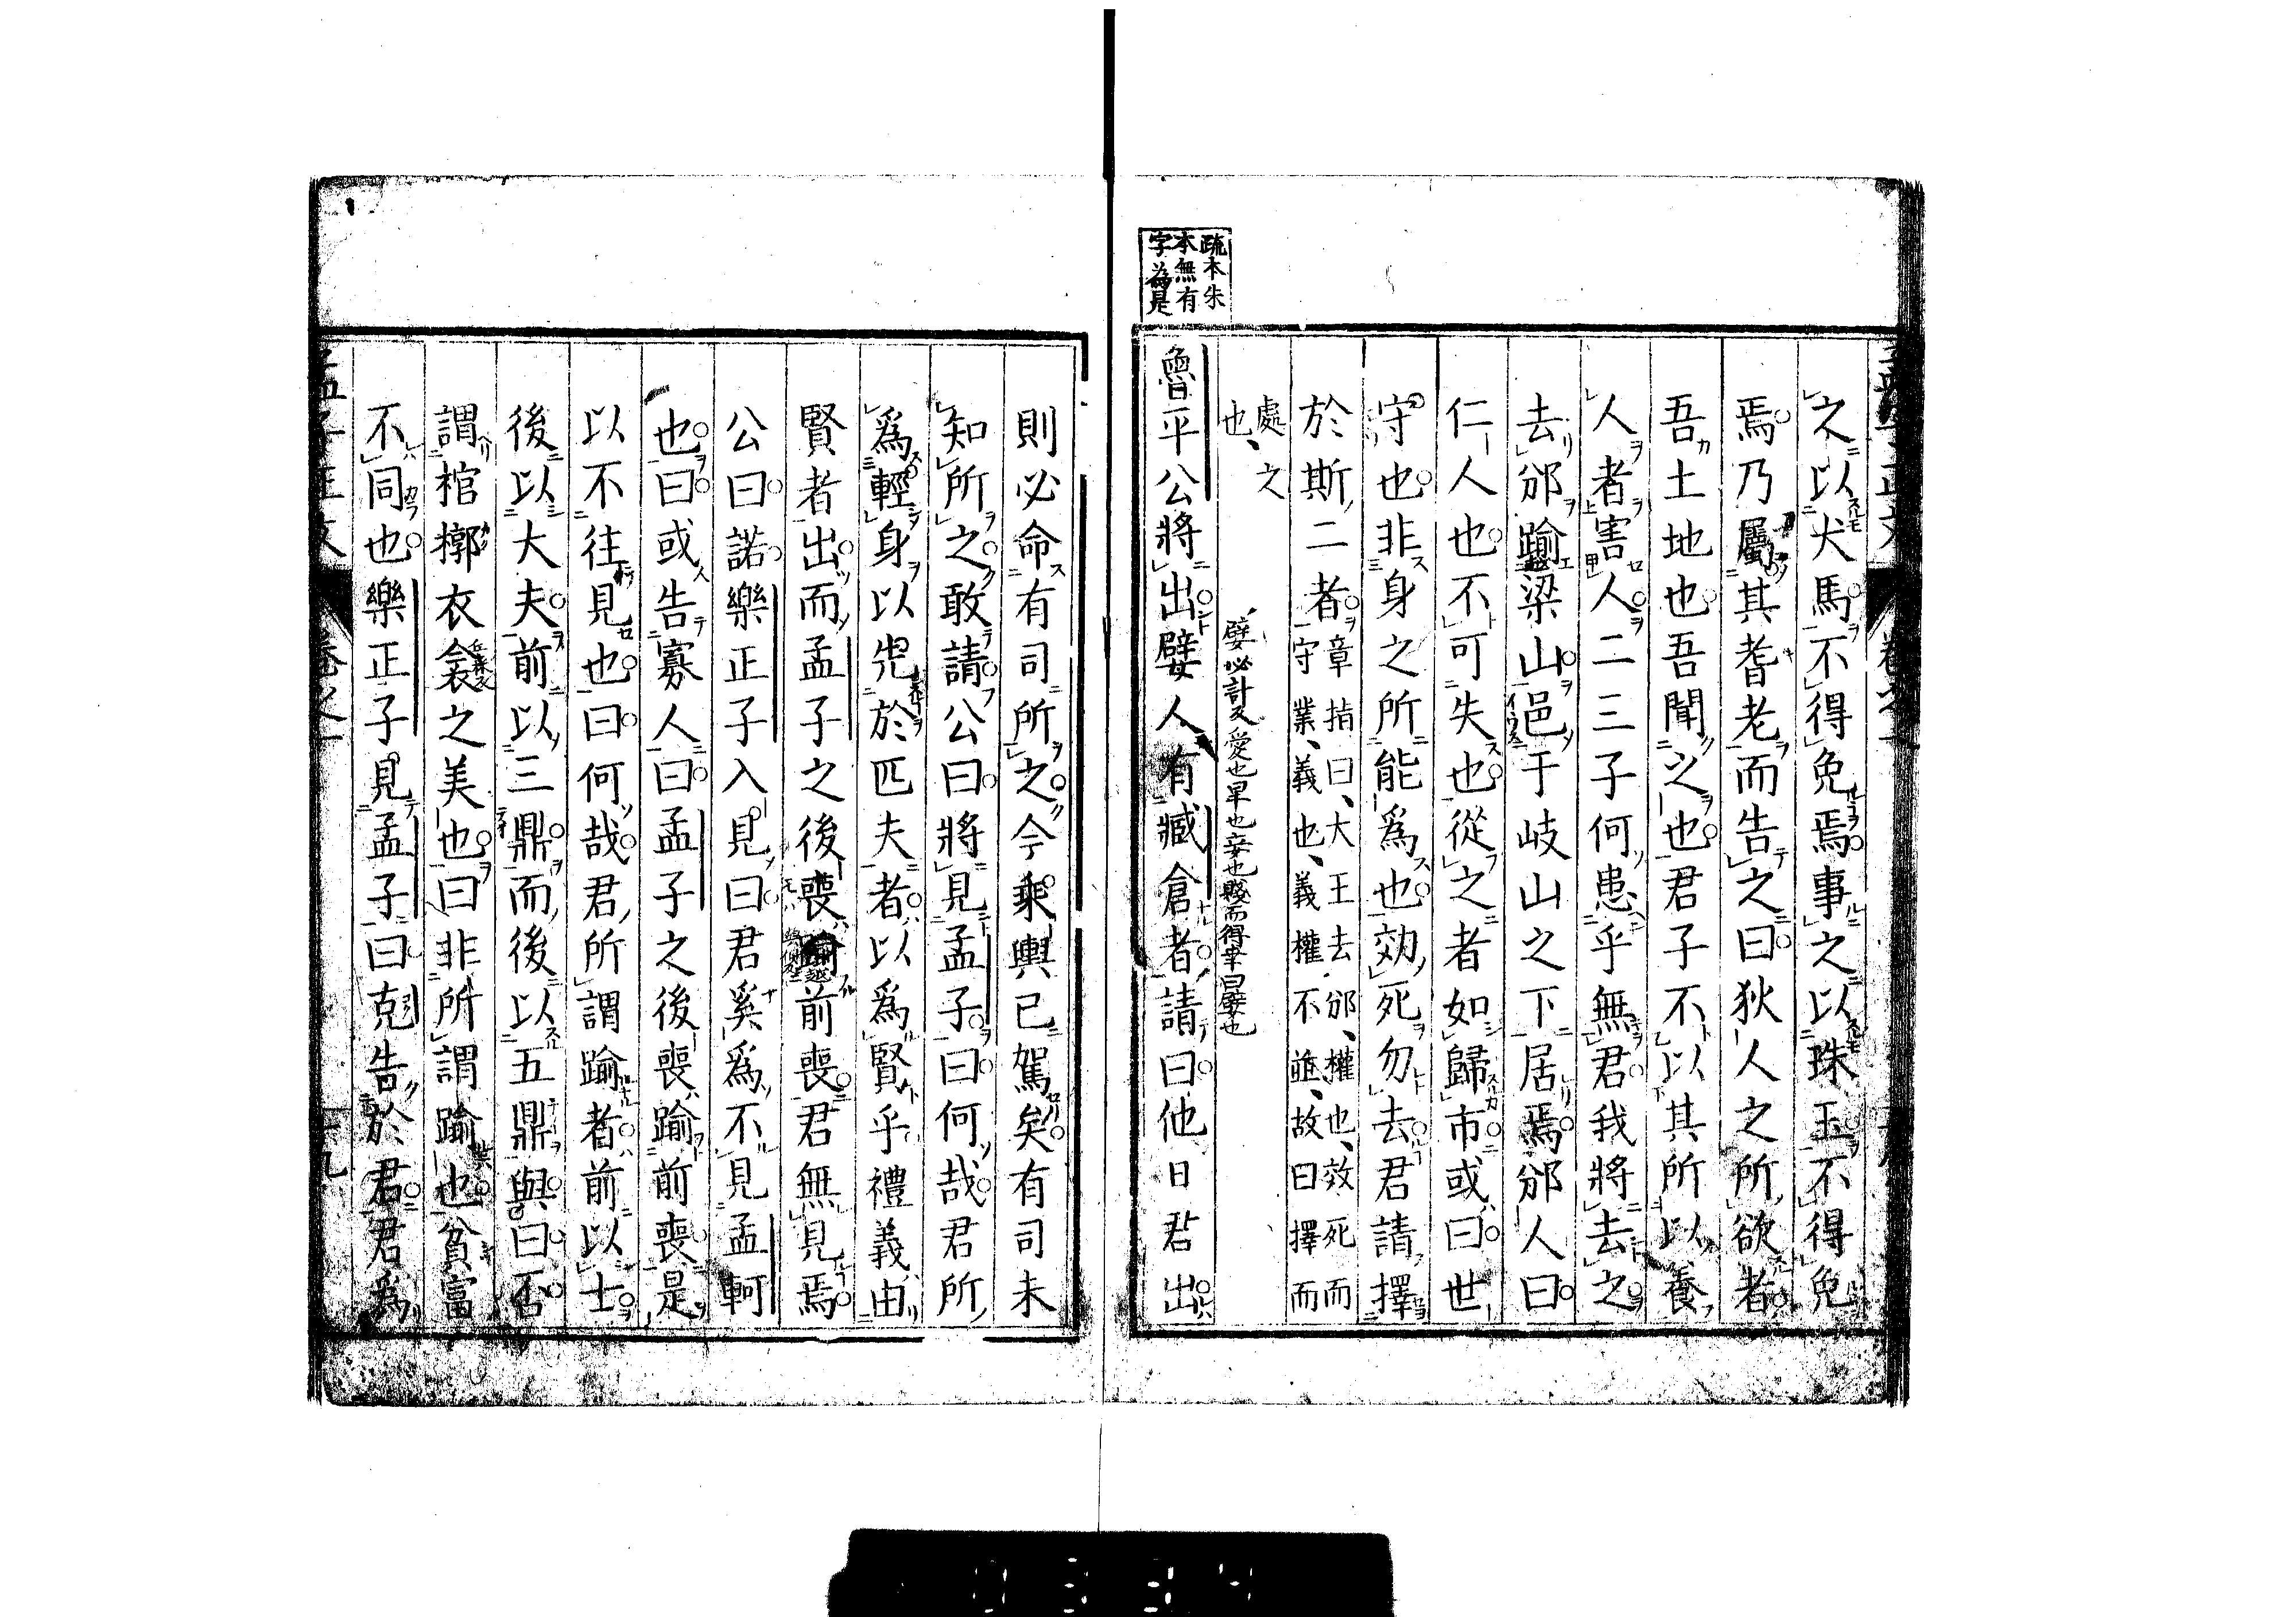 之以犬馬不得免焉事之以珠玉不得免
焉乃屬其耆老而告之曰狄人之所欲者
吾土地也吾聞之也君子不以其所以養
人者害人二三子何患乎無君我將去之
去邠踰梁山邑于岐山之下居焉邠人曰
仁人也不可失也從之者如歸市或曰世
守也非身之所能爲也効死勿去君請擇
於斯二者
章指曰、大王去邠、權也、效死而
守業、義也、義權不並、故曰擇而
處之
也、
嬖必計反愛也卑也妾也賤而得幸曰嬖也
疏本朱
本無有
字為是
魯平公將出嬖人有臧倉者請曰他日君出
則必命有司所之今乘輿已駕矣有司未
知所之敢請公曰將見孟子曰何哉君所
爲輕身以先於匹夫者以爲賢乎禮義由
賢者出而孟子之後喪踰前喪君無見焉
公曰諾樂正子入見曰君奚爲不見孟軻
也曰或告寡人曰孟子之後喪踰前喪是
以不往見也曰何哉君所謂踰者前以士
後以大夫前以三鼎而後以五鼎與曰否
謂棺槨衣衾之美也曰非所謂踰也貧富
不同也樂正子見孟子曰克告於君君爲